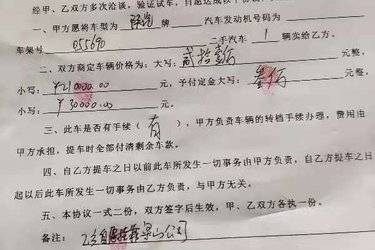 经甲、乙双方多次洽谈，验证试车，自愿达成以下协议
一、甲方愿将车型为 牌 汽车发动机号码为
车架号 055690 二手汽车 1 辆实给乙方。
二、双方商定车辆价格为：大写： 贰拾壹万 元整，
小写： ¥210000.00 元，予付定金大写： 叁万 元整，
小写： ¥30000.00 元。
三、此车是否有手续（ 有 ），甲方负责车辆的转档手续办理，费用由
甲方承担，提车时全部付清剩余车款。
四、自乙方提车之日以前此车所发生一切事务由甲方负责，自乙方提车之日
起以后此车所发生一切事务由乙方负责，与甲方无关。
五、本协议一式二份，双方签字后生效，甲、乙双方各执一份。
备注： 公司